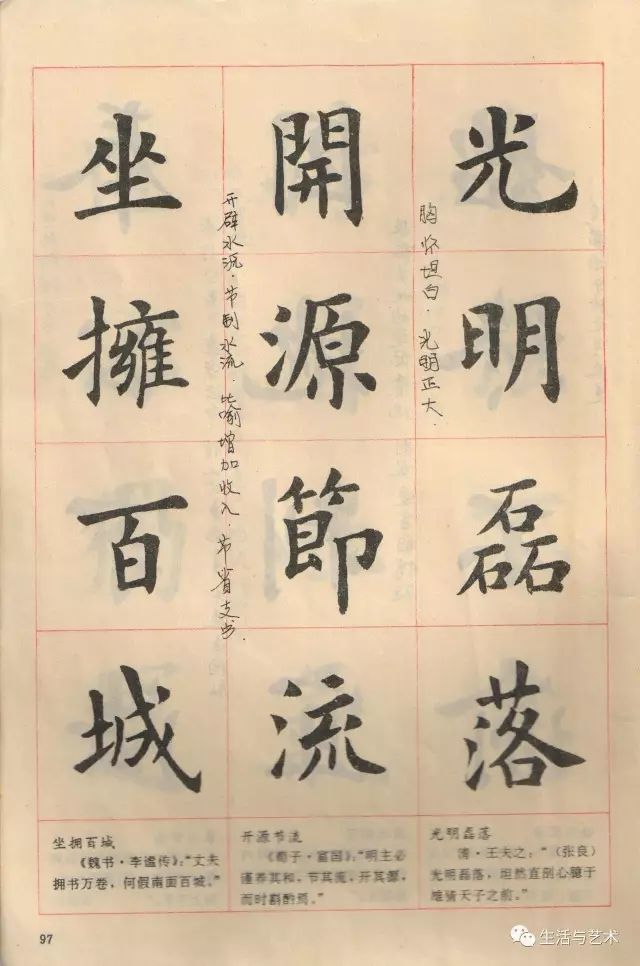 光明磊落
胸怀坦白·光明正大.
開源節流
开辟水流·节制水流·比喻增加收入·节省支出.
坐擁百城
坐拥百城
《魏书·李谧传》:“丈夫
拥书万卷，何假南面百城。”
开源节流
《荀子·富国》:“明主必
谨养其和，节其流，开其源，
而时斟酌焉。”
光明磊落
清·王夫之:“(张良)
光明磊落，坦然直剖心臆于
雄猜天子之前。”
97
生活与艺术